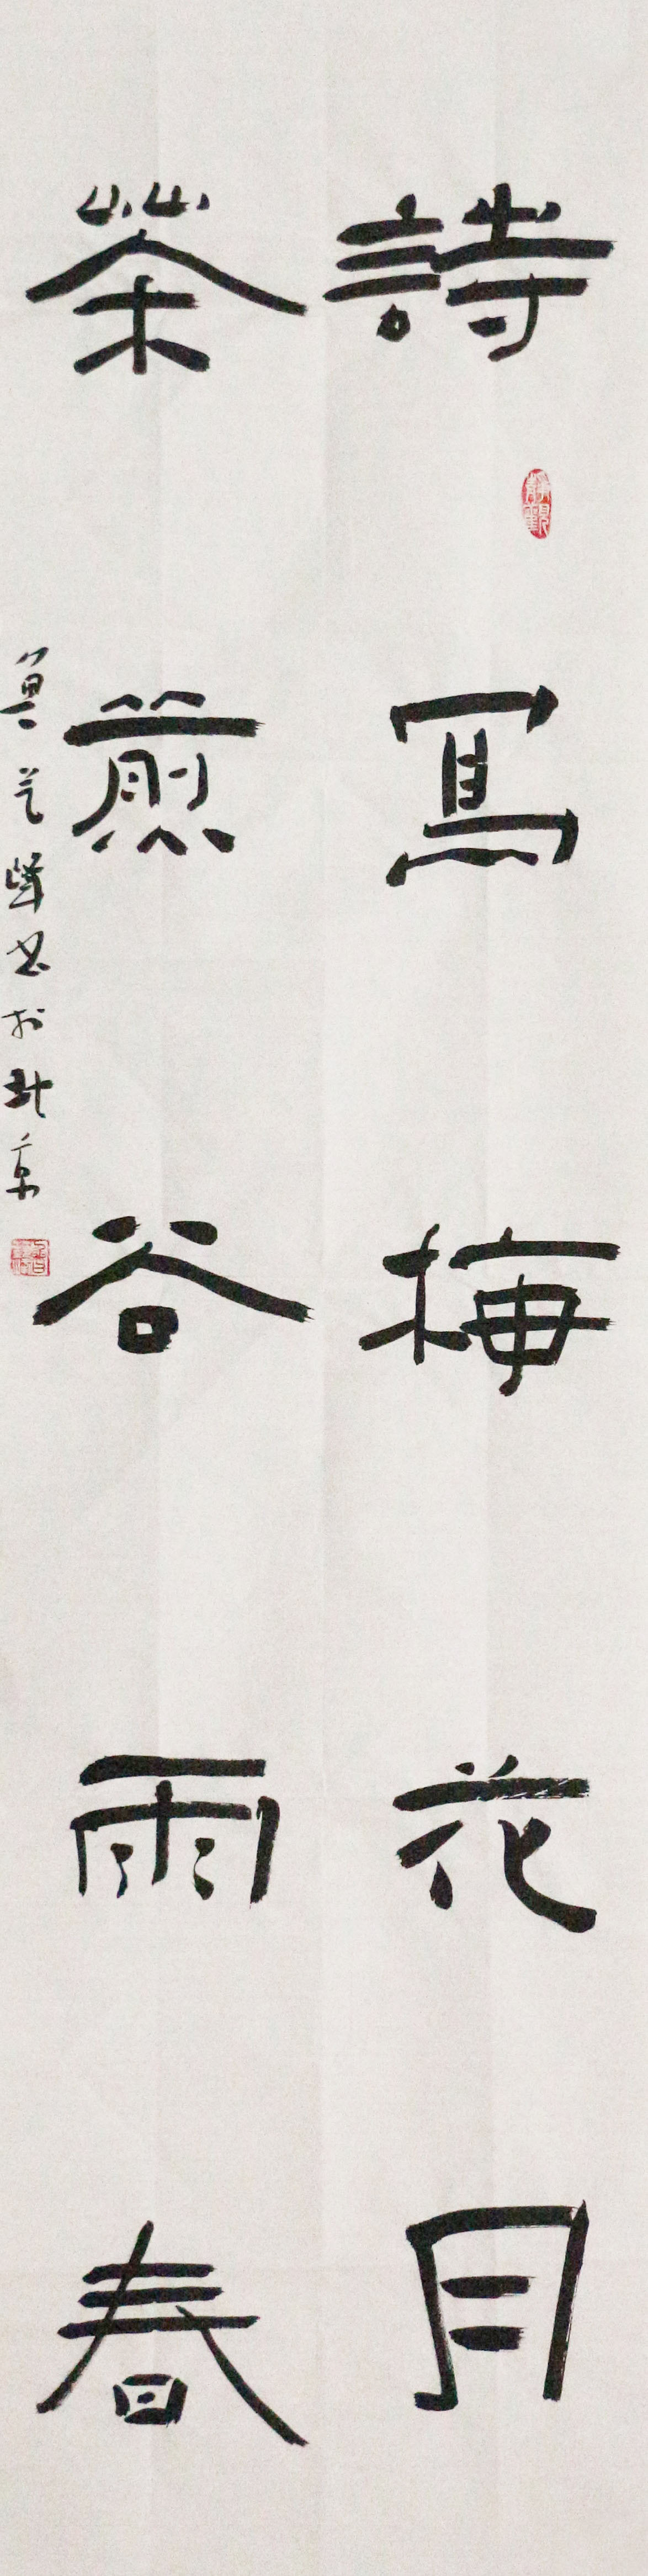 詩寫梅花月
茶煎谷雨春
書於北京
靜觀